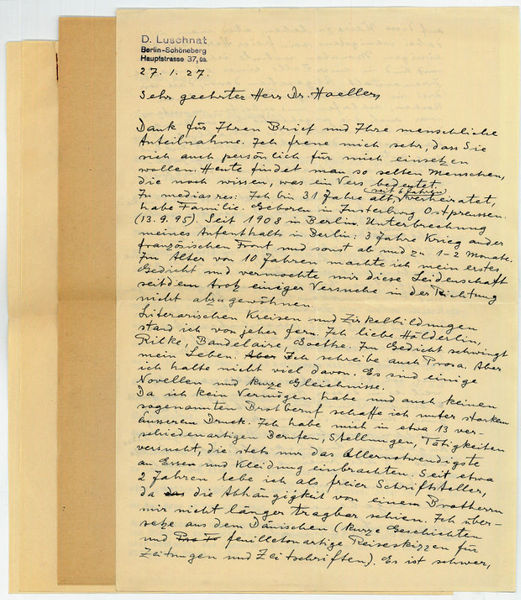 D. Luschnat
Berlin-Schöneberg
Hauptstrasse 37, III.
27.1.27.
Sehr geehrter Herr Dr.
Dank für Ihren Brief und Ihre menschliche
Anteilnahme. Ich freue mich sehr, dass Sie
sich auch persönlich für mich einsetzen
wollen. Heute findet man so selten Menschen,
die noch wissen, was ein Vers bedeutet.
seit 6 Jahren
In medias res: Ich bin 31 Jahre alt, verheiratet,
habe Familie. Geboren in Insterburg Ostpreussen.
(13.9.95) Seit 1908 in Berlin. Unterbrechung
meines Aufenthalts in Berlin: 3 Jahre Krieg an der
französischen Front und sonst ab und zu 1-2 Monate.
Im Alter von 10 Jahren machte ich mein erstes
Gedicht und vermochte mir diese Leidenschaft
seitdem trotz einiger Versuche in der Richtung
nicht abzugewöhnen.
Literarischen Kreisen und Zirkelbildungen
stand ich von jeher fern. Ich liebe Hölderlin,
Rilke, Baudelaire, Goethe. Im Gedicht schwingt
mein Leben. Aber Ich schreibe auch Prosa. Aber
ich halte nicht viel davon. Es sind einige
Novellen und kurze Gleichnisse.
Da ich kein Vermögen habe und auch keinen
sogenannten Brotberuf schaffe ich unter starkem
äusserem Druck. Ich habe mich in etwa 13 ver-
schiedenartigen Berufen, Stellungen, Tätigkeiten
versucht, die stets nur das Allernotwendigste
an Essen und Kleidung einbrachten. Seit etwa
2 Jahren lebe ich als freier Schriftsteller,
da das die Abhängigkeit von einem Brotherrn
mir nicht länger tragbar schien. Ich über-
setze aus dem Dänischen (kurze Geschichten
und feuilletonartige Reiseskizzen für
Zeitungen und Zeitschriften). Es ist schwer,